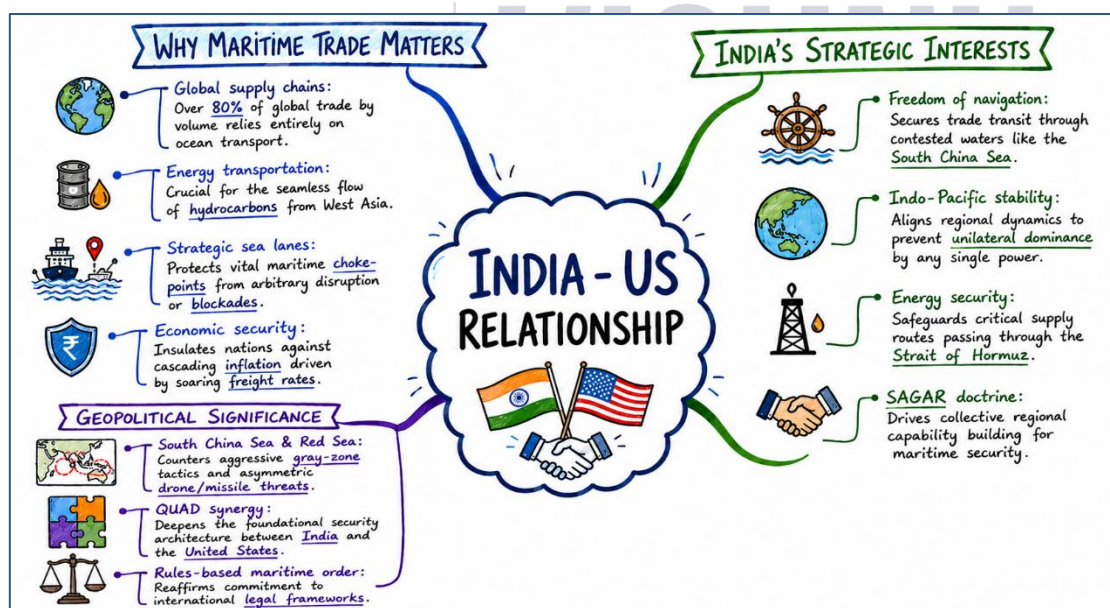 WHY MARITIME TRADE MATTERS
Global supply chains:
Over 80% of global trade by
volume relies entirely on
ocean transport.
Energy transportation:
Crucial for the seamless flow
of hydrocarbons from West Asia.
Strategic sea lanes:
Protects vital maritime choke-
points from arbitrary disruption
or blockades.
₹
Economic security:
Insulates nations against
cascading inflation driven
by soaring freight rates.
GEOPOLITICAL SIGNIFICANCE
South China Sea & Red Sea:
Counters aggressive gray-zone
tactics and asymmetric
drone/missile threats.
QUAD synergy:
Deepens the foundational security
architecture between India and
the United States.
Rules-based maritime order:
Reaffirms commitment to
international legal frameworks.
INDIA - US
RELATIONSHIP
INDIA'S STRATEGIC INTERESTS
Freedom of navigation:
Secures trade transit through
contested waters like the
South China Sea.
Indo-Pacific stability:
Aligns regional dynamics to
prevent unilateral dominance
by any single power.
Energy security:
Safeguards critical supply
routes passing through the
Strait of Hormuz.
SAGAR doctrine:
Drives collective regional
capability building for
maritime security.